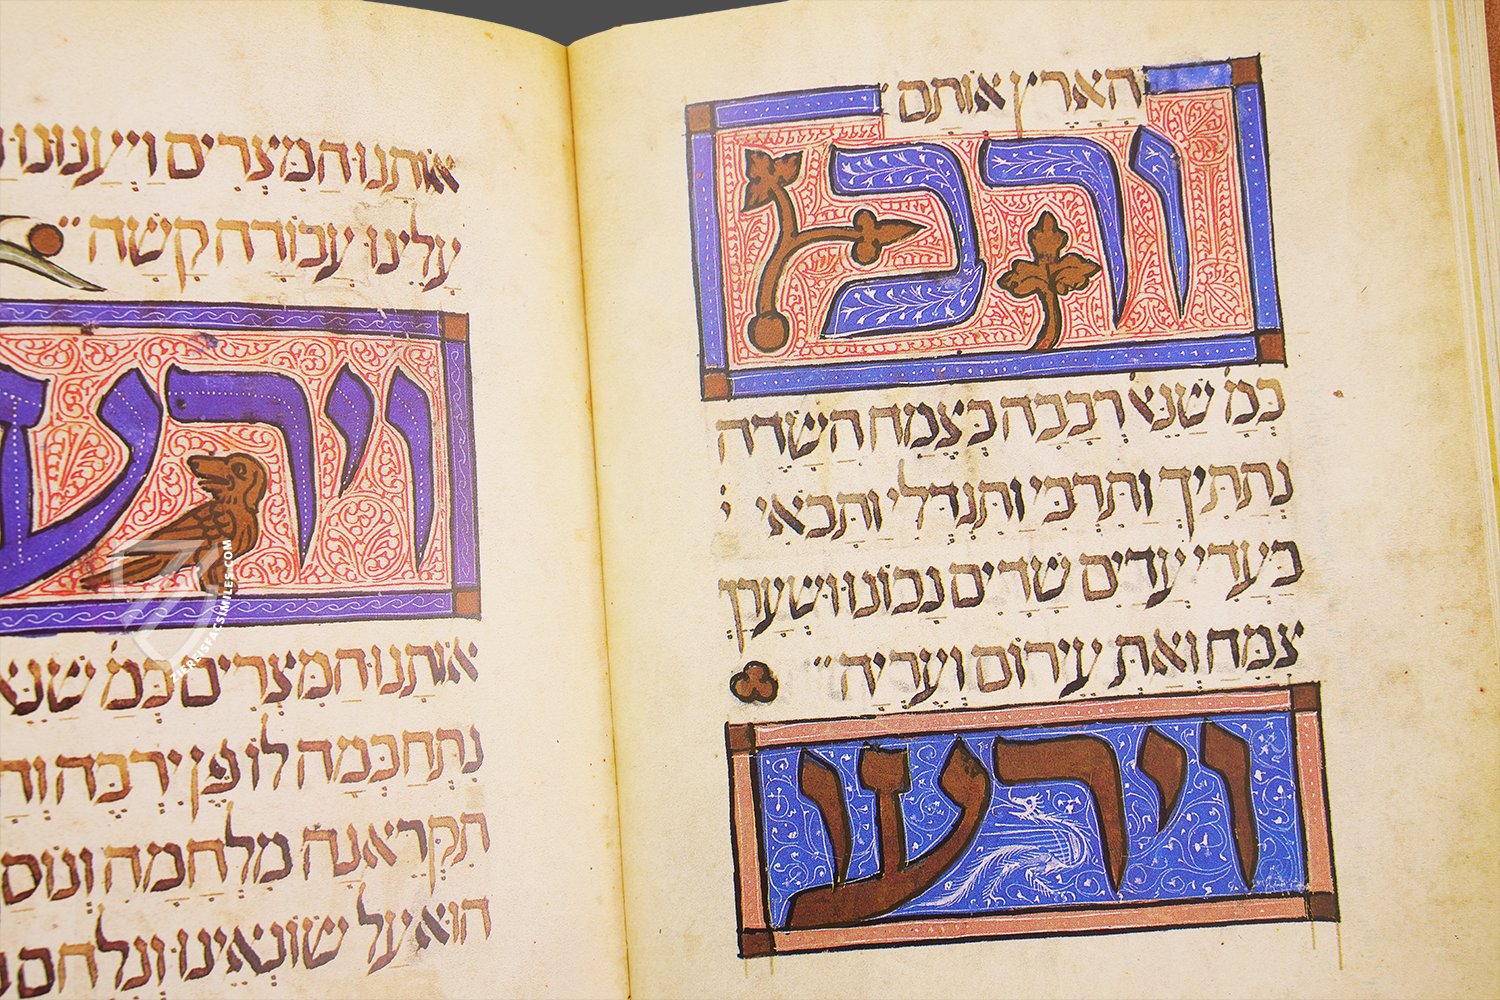 הארץ אותם
ורב
כמו שנא רבבה כצמח השדה
נתתיך ותרבי ותגדלי ותבאי
בעדי עדים שדים נכונו ושערך
צמח ואת ערום ועריה
וירעו
אותנו המצרים ויענונו
עלינו עבודה קשה
וירע
אותנו המצרים כמו שנא
נתחכמה לו פן ירבה והי
תקראנה מלחמה ונוס
הוא על שונאינו ונלחם
ZIEREISFACSIMILES.COM